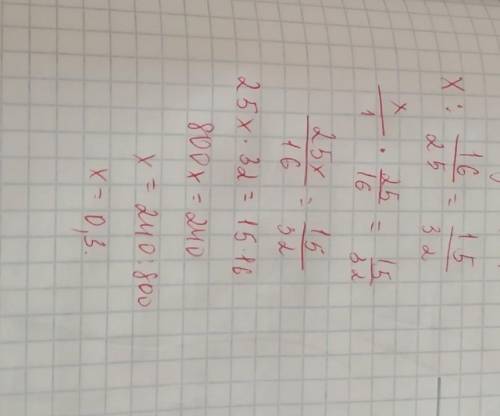 x : 16/25 = 15/32
x/1 · 25/16 = 15/32
25x/16 = 15/32
25x · 32 = 15 · 16
800x = 240
x = 240 : 800
x = 0,3.